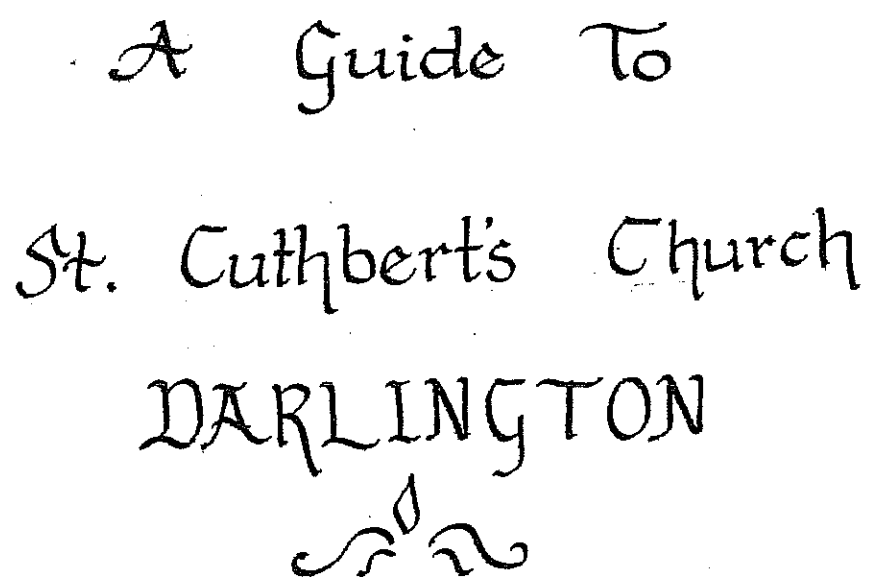 A Guide To
St. Cuthbert's Church
DARLINGTON